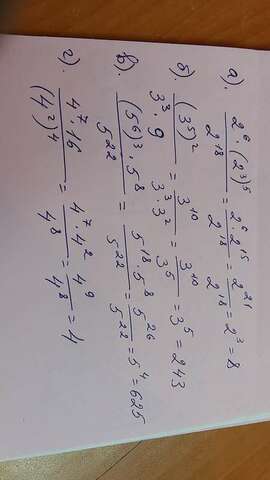 а). \frac{2^6 \cdot (2^3)^5}{2^{18}} = \frac{2^6 \cdot 2^{15}}{2^{18}} = \frac{2^{21}}{2^{18}} = 2^3 = 8
б). \frac{(3^5)^2}{3^3 \cdot 9} = \frac{3^{10}}{3^3 \cdot 3^2} = \frac{3^{10}}{3^5} = 3^5 = 243
в). \frac{(5^6)^3 \cdot 5^8}{5^{22}} = \frac{5^{18} \cdot 5^8}{5^{22}} = \frac{5^{26}}{5^{22}} = 5^4 = 625
г). \frac{4^7 \cdot 16}{(4^2)^4} = \frac{4^7 \cdot 4^2}{4^8} = \frac{4^9}{4^8} = 4